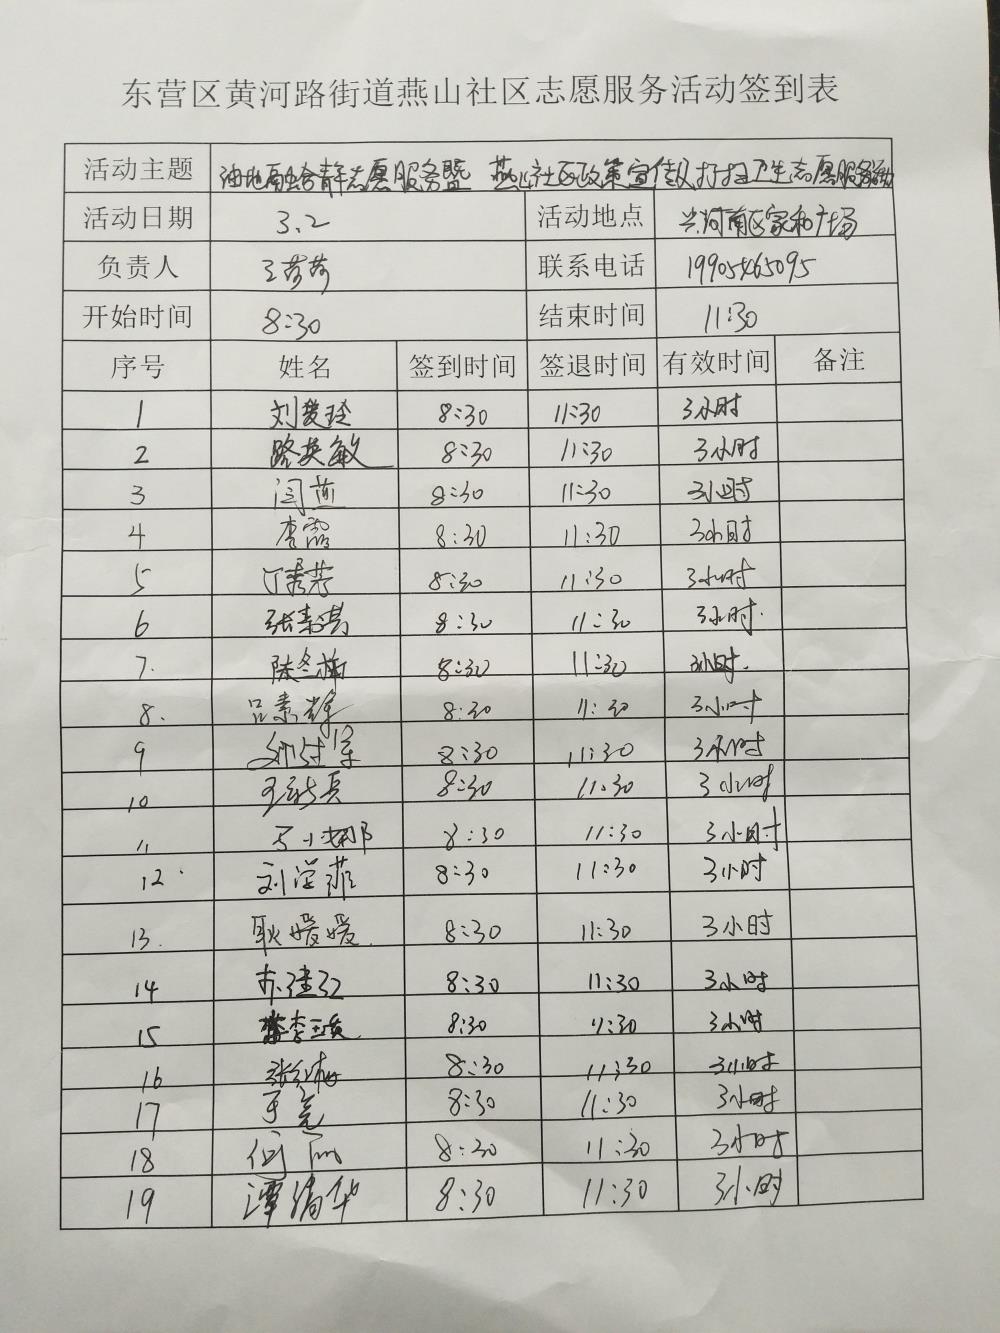 东营区黄河路街道燕山社区志愿服务活动签到表
活动主题 油地融合青年志愿服务暨 燕山社区政策宣传及打扫卫生志愿服务活动
活动日期 3.2 活动地点 兴河南区家和广场
负责人 王莎莎 联系电话 19905465095
开始时间 8:30 结束时间 11:30
序号 姓名 签到时间 签退时间 有效时间 备注
1 刘爱玲 8:30 11:30 3小时
2 路英敏 8:30 11:30 3小时
3 闫燕 8:30 11:30 3小时
4 李霞 8:30 11:30 3小时
5 丁秀芳 8:30 11:30 3小时
6 张素 8:30 11:30 3小时.
7. 陈冬梅 8:30 11:30 3小时.
8. 吕素 8:30 11:30 3小时
9 8:30 11:30 3小时
10 王 8:30 11:30 3小时
11 小娜 8:30 11:30 3小时
12. 刘学菲 8:30 11:30 3小时
13. 耿媛媛. 8:30 11:30 3小时
14 8:30 11:30 3小时
15 李 8:30 11:30 3小时
16 张红梅 8:30 11:30 3小时
17 于亮 8:30 11:30 3小时
18 何丽 8:30 11:30 3小时
19 谭清华 8:30 11:30 3小时